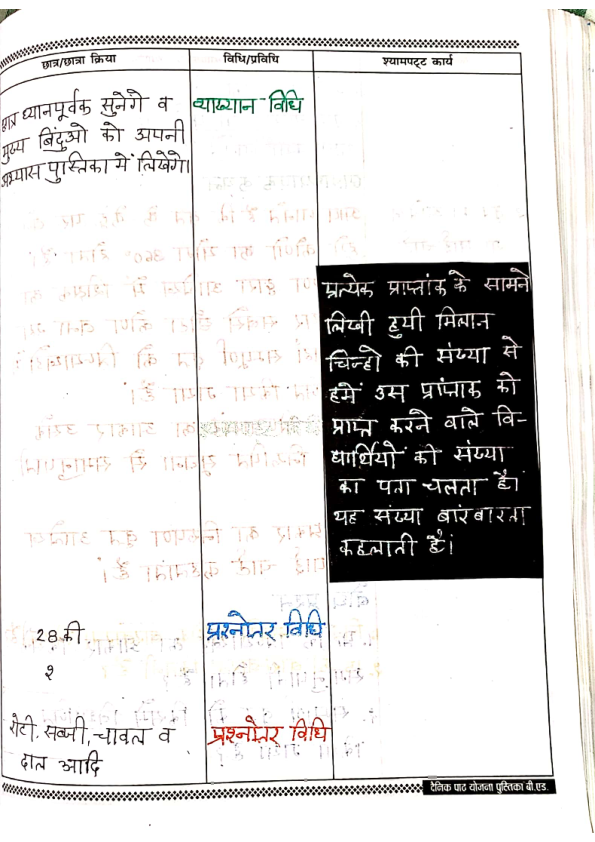 छात्र/छात्रा क्रिया
विधि/प्रविधि
श्यामपट्ट कार्य
छात्र ध्यानपूर्वक सुनेगे व
मुख्य बिंदुओ को अपनी
अभ्यास पुस्तिका में लिखेगे।
व्याख्यान विधि
प्रत्येक प्राप्तांक के सामने
लिखी हुयी मिलान
चिन्हो की संख्या से
हमें उस प्रांप्ताक को
प्राप्त करने वाले वि-
धार्थियों की संख्या
का पता चलता है।
यह संख्या बारंबारता
कहलाती है।
28 की
२
प्रश्नोतर विधि
रोटी, सब्जी, चावल व
दाल आदि
प्रश्नोतर विधि
दैनिक पाठ योजना पुस्तिका बी.एड.